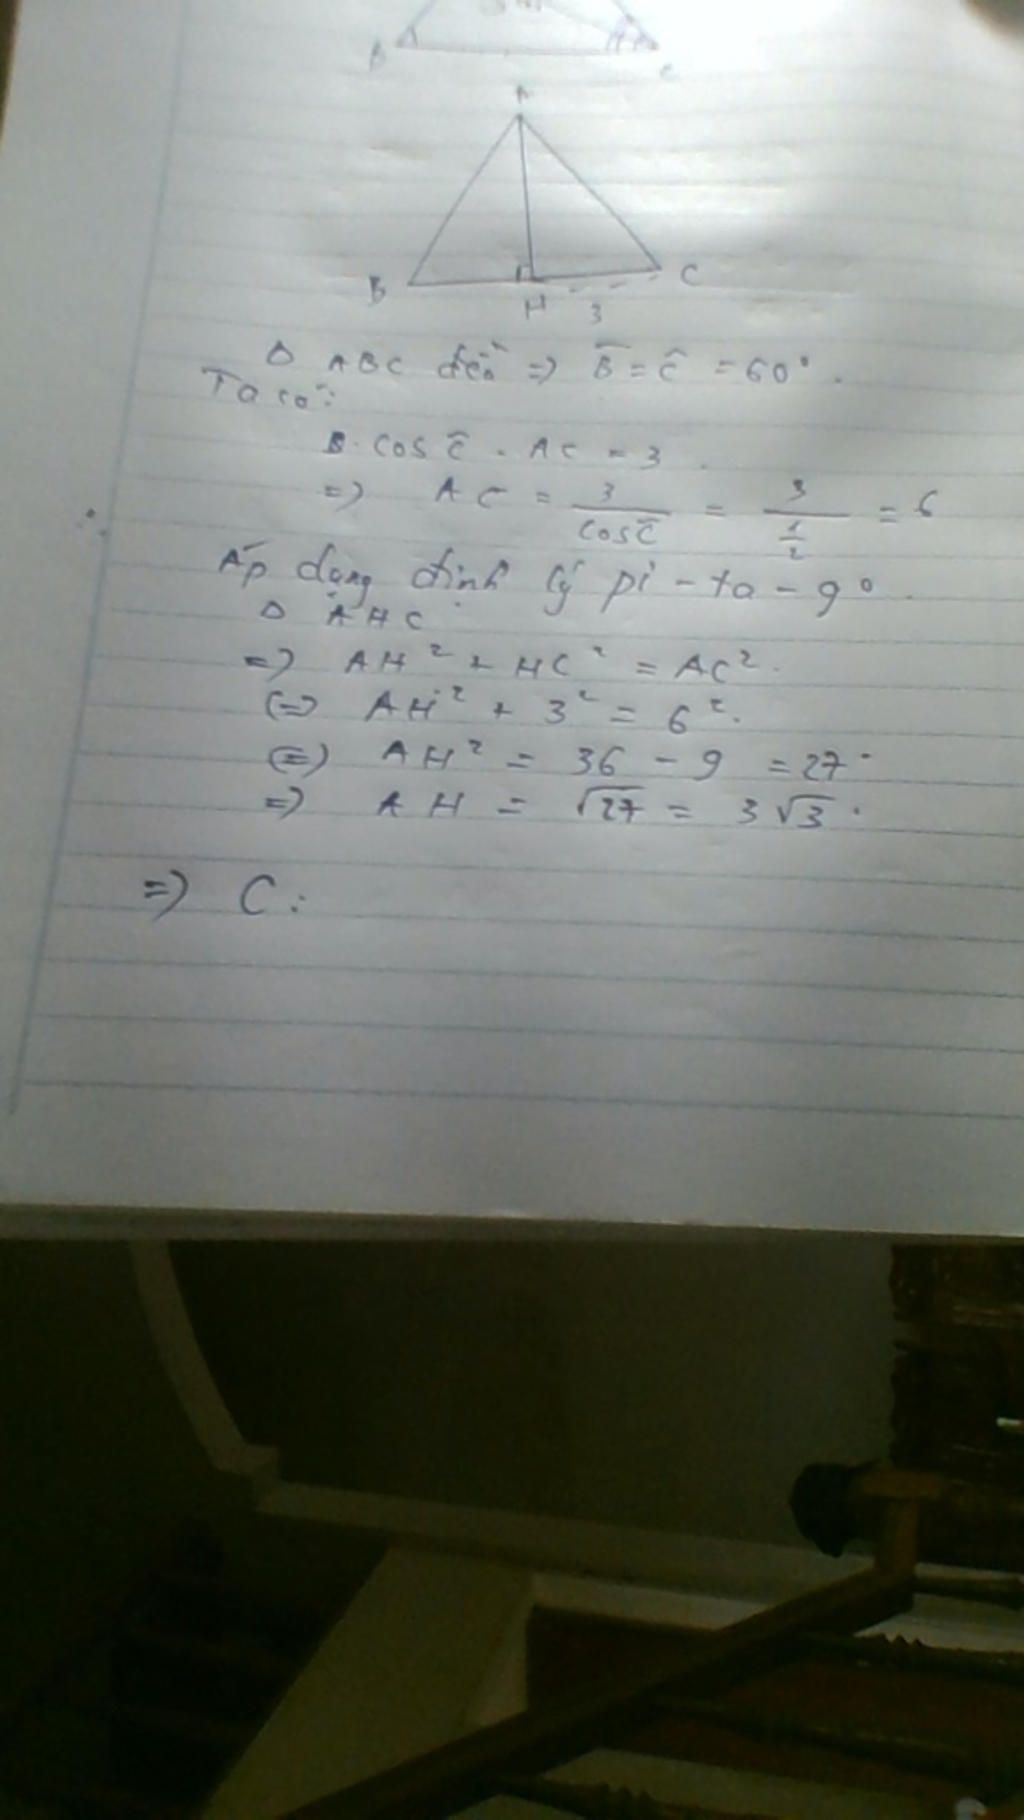 B
C
A
B
C
H
3
Δ ABC đều => B̂ = Ĉ = 60°.
Ta có:
cos Ĉ . AC = 3.
=> AC = 3 / cos Ĉ = 3 / 1/2 = 6
Áp dụng định lý pi-ta-go
Δ AHC
=> AH² + HC² = AC².
(=) AH² + 3² = 6².
(=) AH² = 36 - 9 = 27.
=> AH = √27 = 3√3.
=> C.